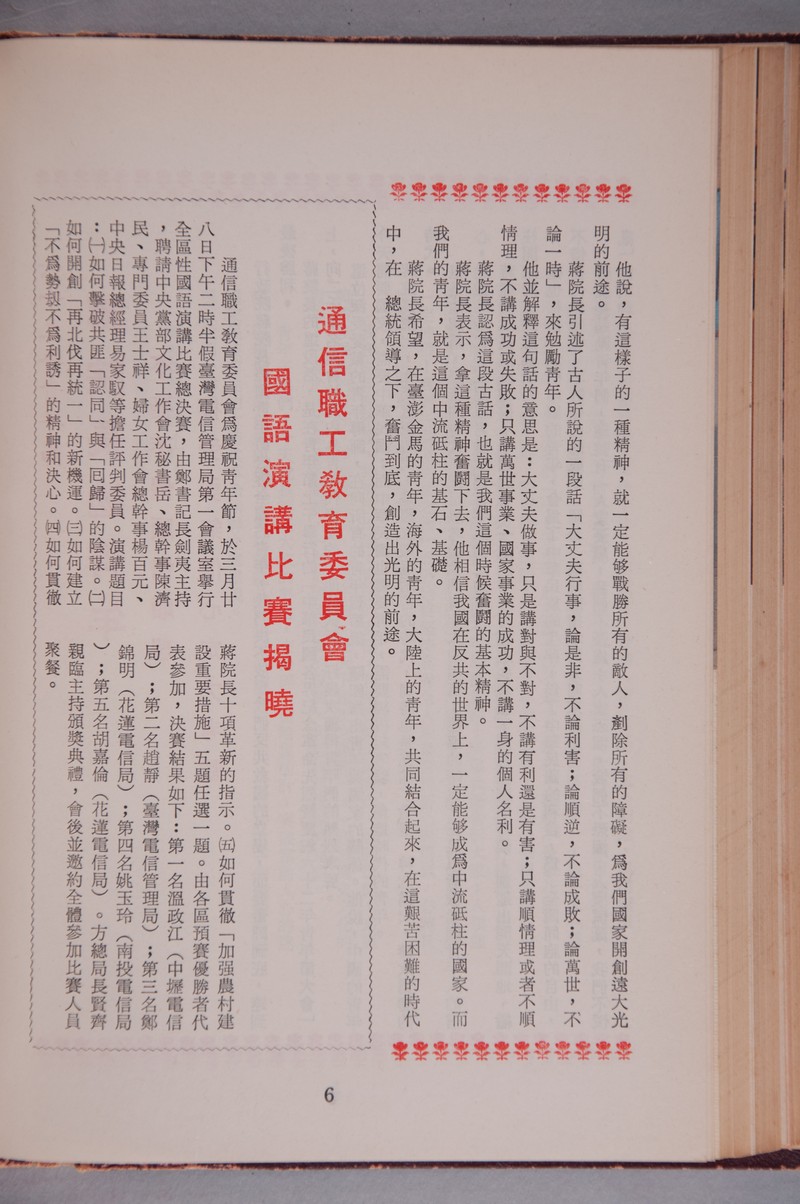 他說，有這樣子的一種精神，就一定能够戰勝所有的敵人，剷除所有的障礙，爲我們國家開創遠大光
明的前途。
蔣院長引述了古人所說的一段話「大丈夫行事，論是非，不論利害；論順逆，不論成敗；論萬世，不
論一時」，來勉勵靑年。
他並解釋這句話的意思是：大丈夫做事，只是講對與不對，不講有利還是有害；只講順情理或者不順
情理，不講成功或失敗；只講萬世事業、國家事業的成功，不講一身的個人名利。
蔣院長認爲這段古話，也就是我們這個時候奮鬪的基本精神。
蔣院長表示，拿這種精神奮鬪下去，他相信我國在反共的世界上，一定能够成爲中流砥柱的國家。而
我們的靑年，就是這個中流砥柱的基石、基礎。
蔣院長希望，在臺澎金馬的靑年，海外的靑年，大陸上的靑年，共同結合起來，在這艱苦困難的時代
中，在　總統領導之下，奮鬥到底，創造出光明的前途。
通信職工敎育委員會
國語演講比賽揭曉
通信職工敎育委員會爲慶祝靑年節，於三月廿
八日下午二時半假臺灣電信管理局第一會議室舉行
全區性國語演講比賽總決賽，由鄭書記長劍夷主持
，聘請中央黨部文化工作會沈秘書岳、總幹事陳濟
民、專門委員王士祥、婦女工作會總幹事楊百元、
中央日報總經理易家馭等擔任評判委員。演講題目
：㈠如何擊破共匪「認同」與「囘歸」的陰謀。㈡
如何開創「再北伐再統一」的新機運。㈢如何建立
「不爲勢刼不爲利誘」的精神和決心。㈣如何貫徹
蔣院長十項革新的指示。㈤如何貫徹「加强農村建
設重要措施」五題任選一題。由各區預賽優勝者代
表參加，決賽結果如下：第一名溫政江（中壢電信
局）；第二名趙靜（臺灣電信管理局）；第三名鄭
錦明（花蓮電信局）；第四名姚玉玲（南投電信局
）；第五名胡嘉倫（花蓮電信局）。方總局長賢齊
親臨主持頒獎典禮，會後並邀約全體參加比賽人員
聚餐。
6